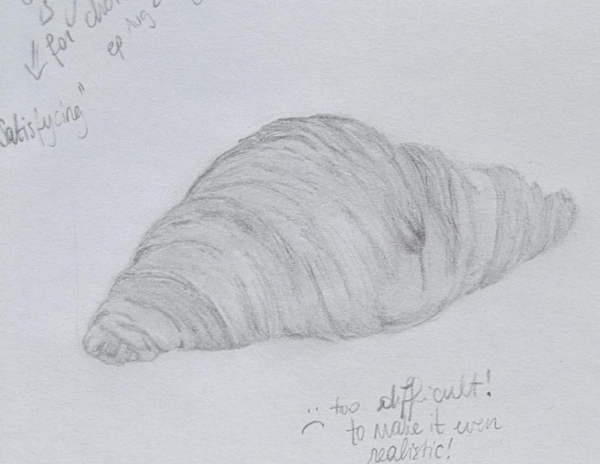 is
for
ep Aug 2
Satisfycing"
too difficult!
to make it even
realistic!